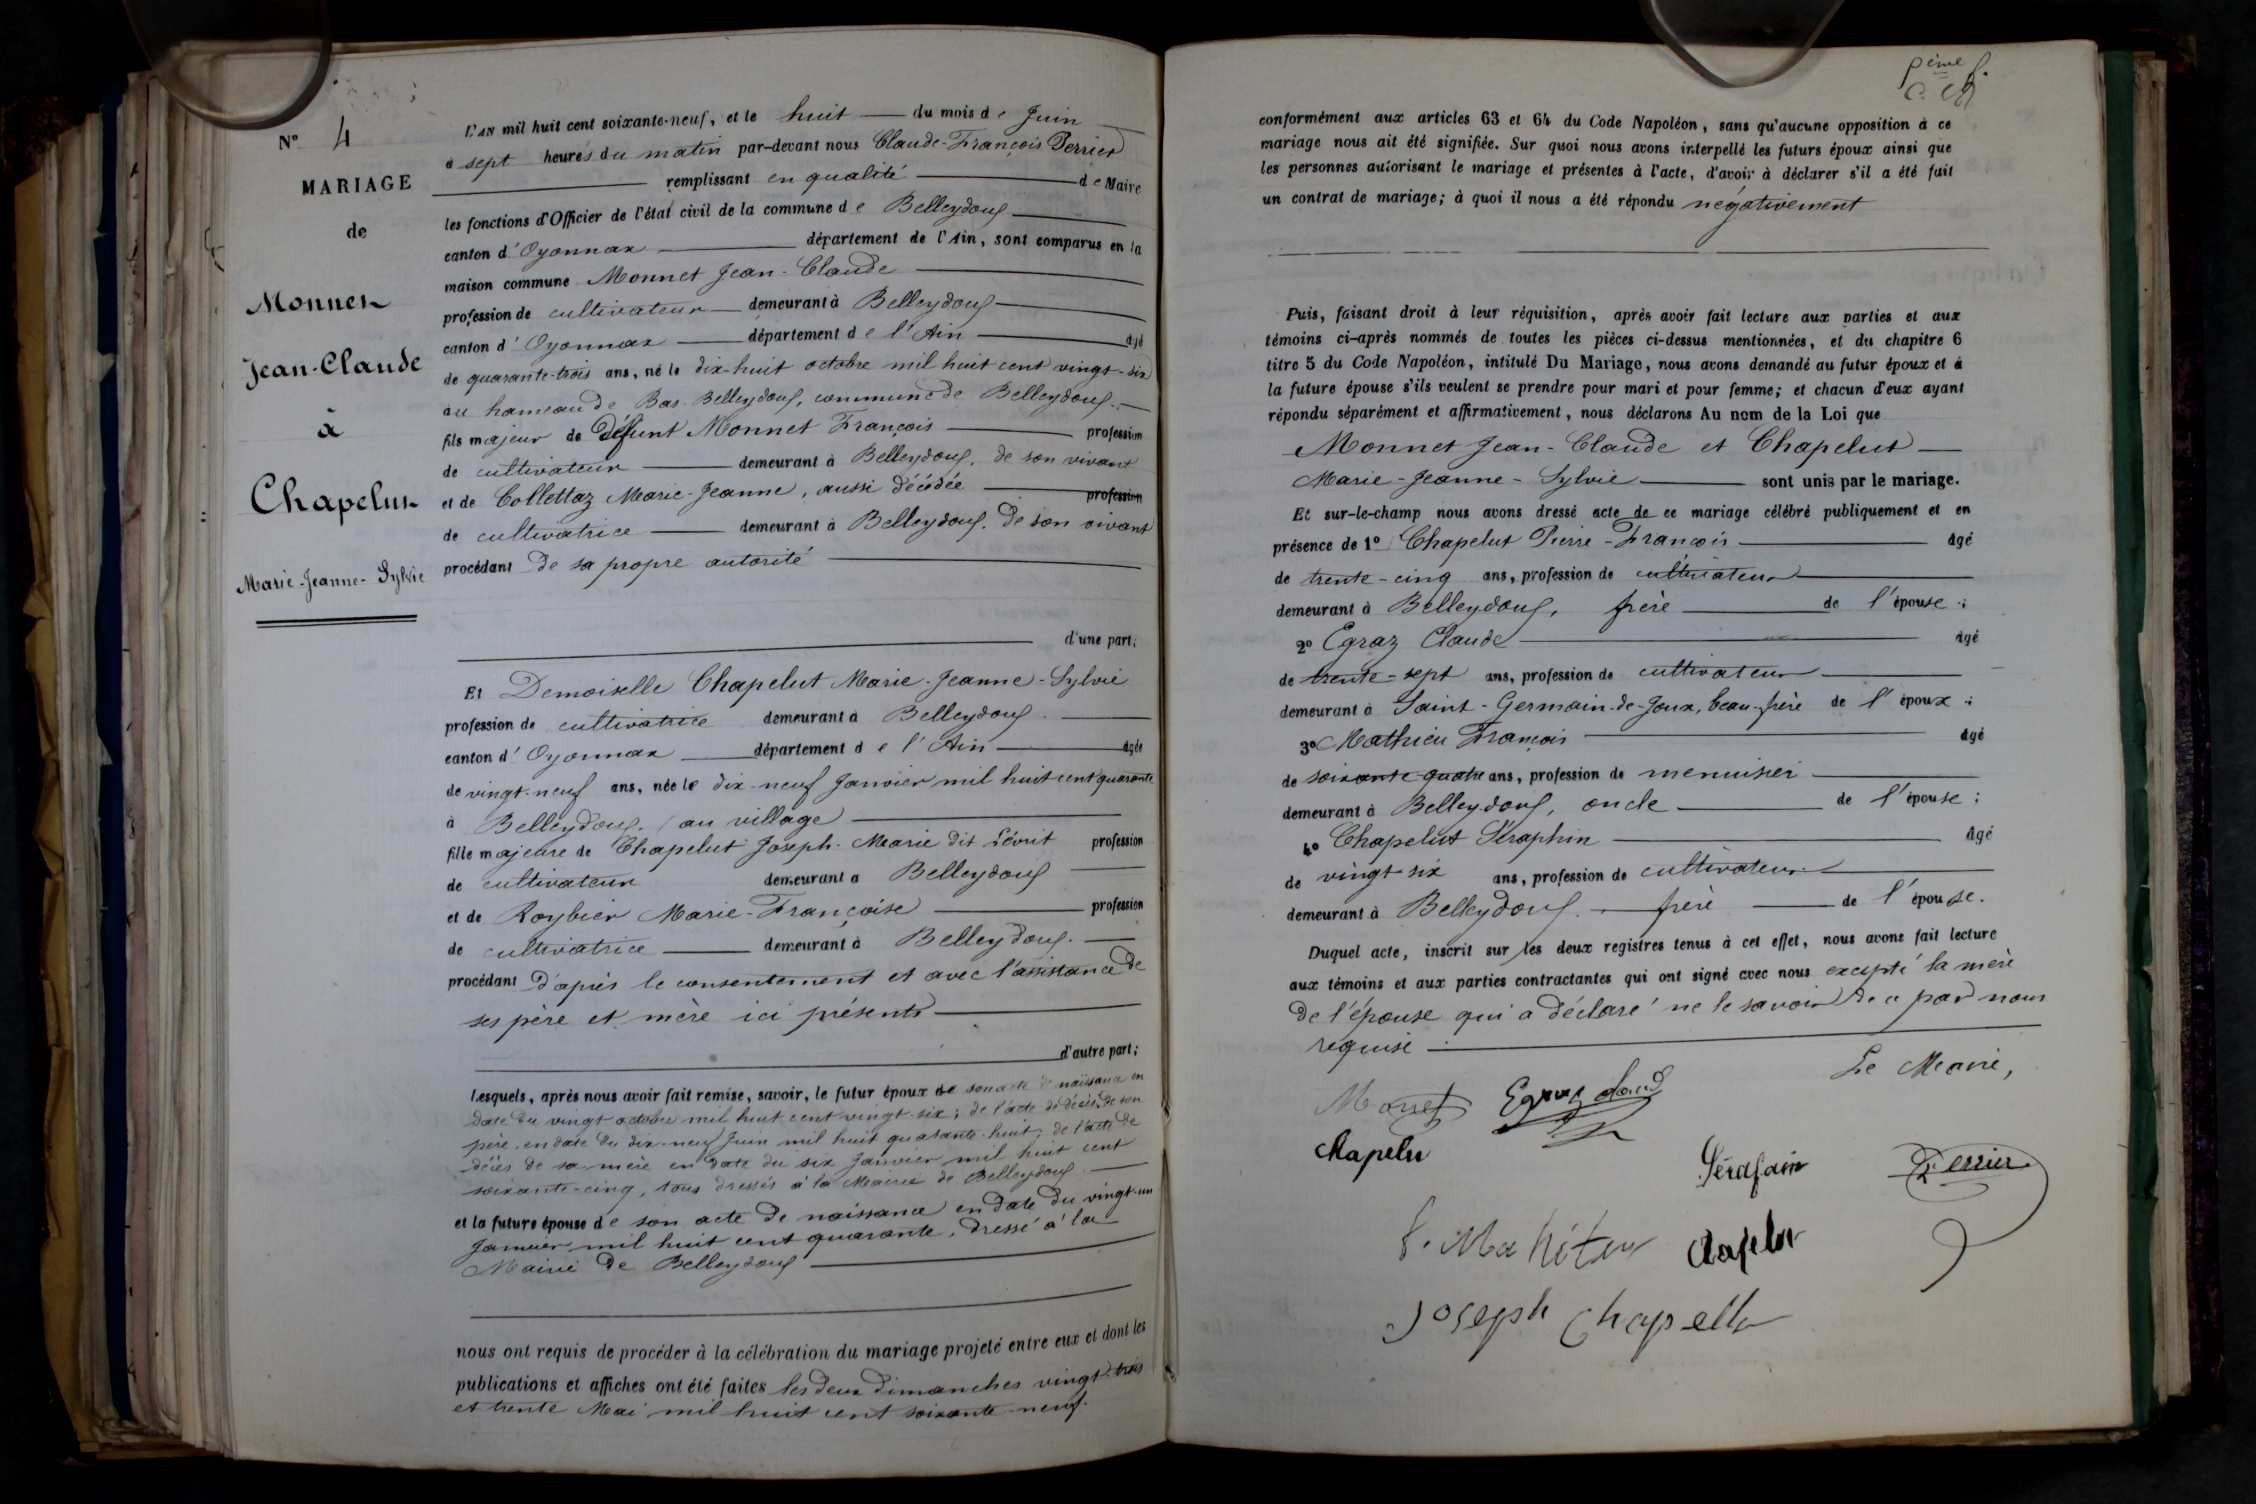 N° 4
MARIAGE
de
Monnet
Jean-Claude
à
Chapelut
Marie-Jeanne-Sylvie
L'AN mil huit cent soixante-neuf, et le huit du mois de Juin
à sept heures du matin par-devant nous Claude-François Perrier
remplissant en qualité de Maire
les fonctions d'Officier de l'état civil de la commune de Belleydoux
canton d'Oyonnax département de l'Ain, sont comparus en la
maison commune Monnet Jean-Claude
profession de cultivateur demeurant à Belleydoux
canton d'Oyonnax département de l'Ain âgé
de quarante-trois ans, né le dix-huit octobre mil huit cent vingt-six
au hameau de Bas-Belleydoux, commune de Belleydoux.
fils majeur de défunt Monnet François profession
de cultivateur demeurant à Belleydoux, de son vivant
et de Collettaz Marie-Jeanne, aussi décédée profession
de cultivatrice demeurant à Belleydoux. de son vivant
procédant de sa propre autorité
d'une part;
Et Demoiselle Chapelut Marie-Jeanne-Sylvie
profession de cultivatrice demeurant à Belleydoux.
canton d'Oyonnax département de l'Ain âgée
de vingt-neuf ans, née le dix-neuf Janvier mil huit cent quarante
à Belleydoux. (au village)
fille majeure de Chapelut Joseph-Marie dit profession
de cultivateur demeurant à Belleydoux
et de Roybier Marie-Françoise profession
de cultivatrice demeurant à Belleydoux.
procédant d'après le consentement et avec l'assistance de
ses père et mère ici présents
d'autre part;
Lesquels, après nous avoir fait remise, savoir, le futur époux de son acte de naissance en
date du vingt octobre mil huit cent vingt-six; de l'acte de décès de son
père en date du dix-neuf Juin mil huit quarante-huit; de l'acte de
décès de sa mère en date du six Janvier mil huit cent
soixante-cinq, tous dressés à la Mairie de Belleydoux
et la future épouse de son acte de naissance en date du vingt-un
Janvier mil huit cent quarante, dressé à la
Mairie de Belleydoux
nous ont requis de procéder à la célébration du mariage projeté entre eux et dont les
publications et affiches ont été faites les deux dimanches vingt-trois
et trente Mai mil huit cent soixante-neuf.
conformément aux articles 63 et 64 du Code Napoléon, sans qu'aucune opposition à ce
mariage nous ait été signifiée. Sur quoi nous avons interpellé les futurs époux ainsi que
les personnes autorisant le mariage et présentes à l'acte, d'avoir à déclarer s'il a été fait
un contrat de mariage; à quoi il nous a été répondu négativement
Puis, faisant droit à leur réquisition, après avoir fait lecture aux parties et aux
témoins ci-après nommés de toutes les pièces ci-dessus mentionnées, et du chapitre 6
titre 5 du Code Napoléon, intitulé Du Mariage, nous avons demandé au futur époux et à
la future épouse s'ils veulent se prendre pour mari et pour femme; et chacun d'eux ayant
répondu séparément et affirmativement, nous déclarons Au nom de la Loi que
Monnet Jean-Claude et Chapelut
Marie-Jeanne-Sylvie sont unis par le mariage.
Et sur-le-champ nous avons dressé acte de ce mariage célébré publiquement et en
présence de 1° Chapelut Pierre-François âgé
de trente-cinq ans, profession de cultivateur
demeurant à Belleydoux, frère de l'épouse;
2° Egraz Claude âgé
de trente-sept ans, profession de cultivateur
demeurant à Saint-Germain-de-Joux, beau-frère de l'époux;
3° Mathieu François âgé
de soixante-quatre ans, profession de menuisier
demeurant à Belleydoux, oncle de l'épouse;
4° Chapelut Séraphin âgé
de vingt-six ans, profession de cultivateur
demeurant à Belleydoux. frère de l'épouse.
Duquel acte, inscrit sur les deux registres tenus à cet effet, nous avons fait lecture
aux témoins et aux parties contractantes qui ont signé avec nous excepté la mère
de l'épouse qui a déclaré ne le savoir de ce par nous
requise
Le Maire,
Monnet Egraz claud
Chapelu
Sérafain Perrier
f. Mahiteu Chapelu
Joseph Chapellu